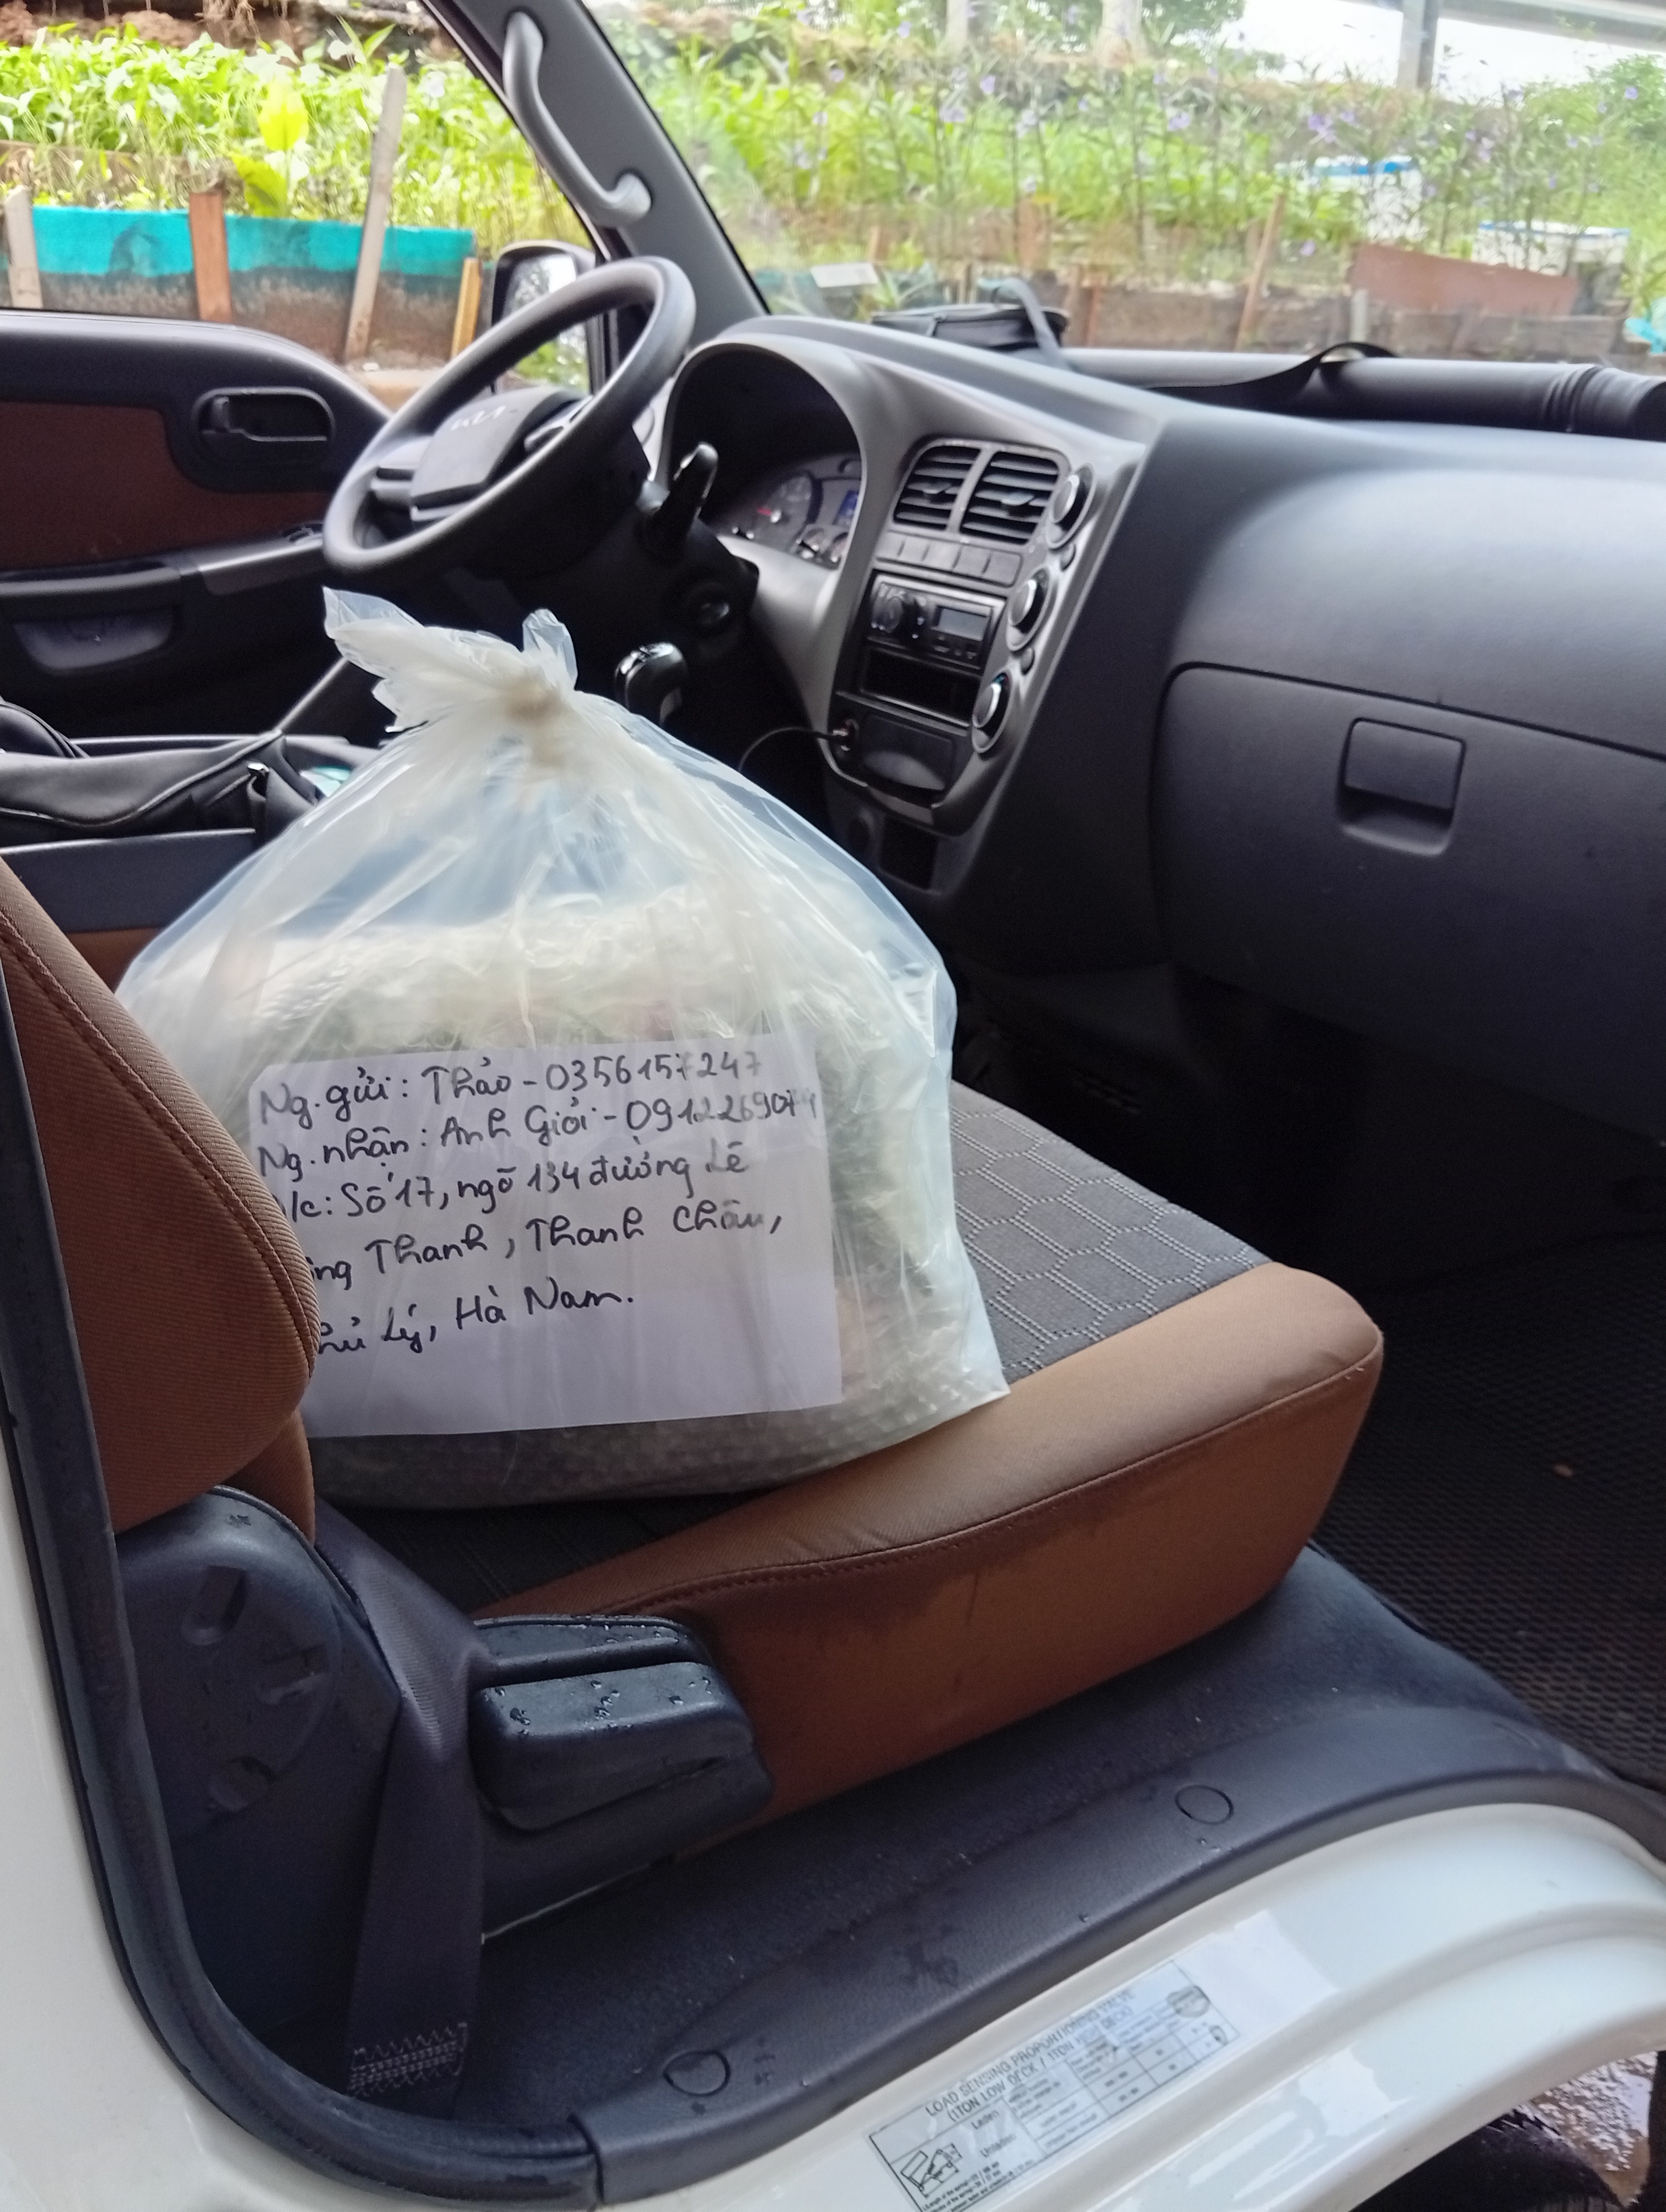 KIA
Ng.gửi: Thảo - 0356157247
Ng.nhận: Anh Giỏi - 0912269074
/c: Số 17, ngõ 134 đường Lê
ng Thanh, Thanh Châu,
hủ Lý, Hà Nam.
LOAD SENSING PROPORTIONING VALVE
(1TON LOW DECK / 1TON HIGH DECK)
Laden
Unladen